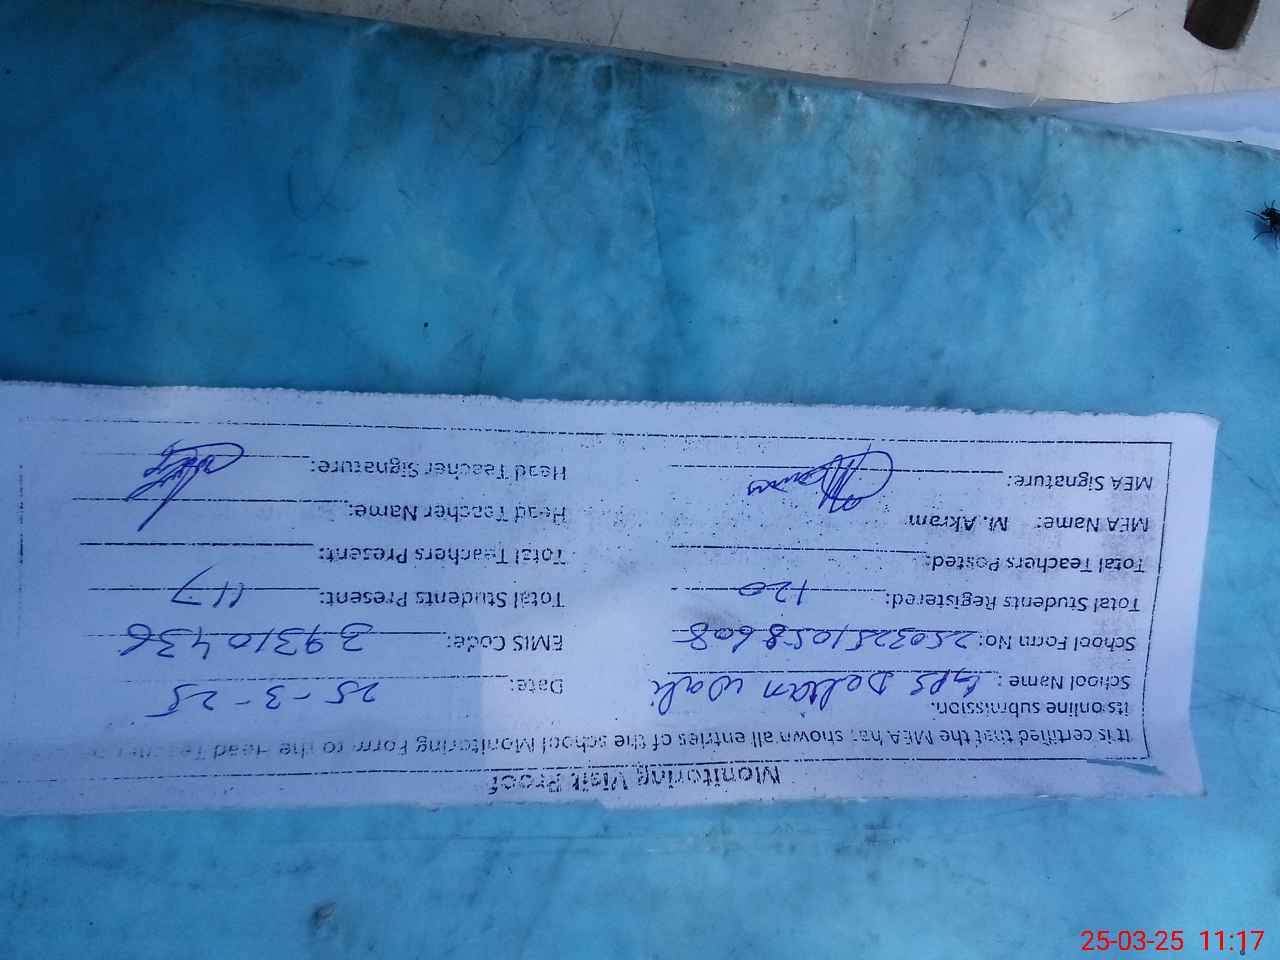 Monitoring Visit Proof
It is certified that the MEA has shown all entries of the school Monitoring Form to the Head Teacher
its online submission.
School Name : GPS Daltan Wali Date: 25-3-25
School Form No: 2503251058608 EMIS Code: 39310436
Total Students Registered: 120 Total Students Present: 117
Total Teachers Posted: Total Teachers Present:
MEA Name: M. Akram Head Teacher Name:
MEA Signature: Head Teacher Signature:
25-03-25 11:17